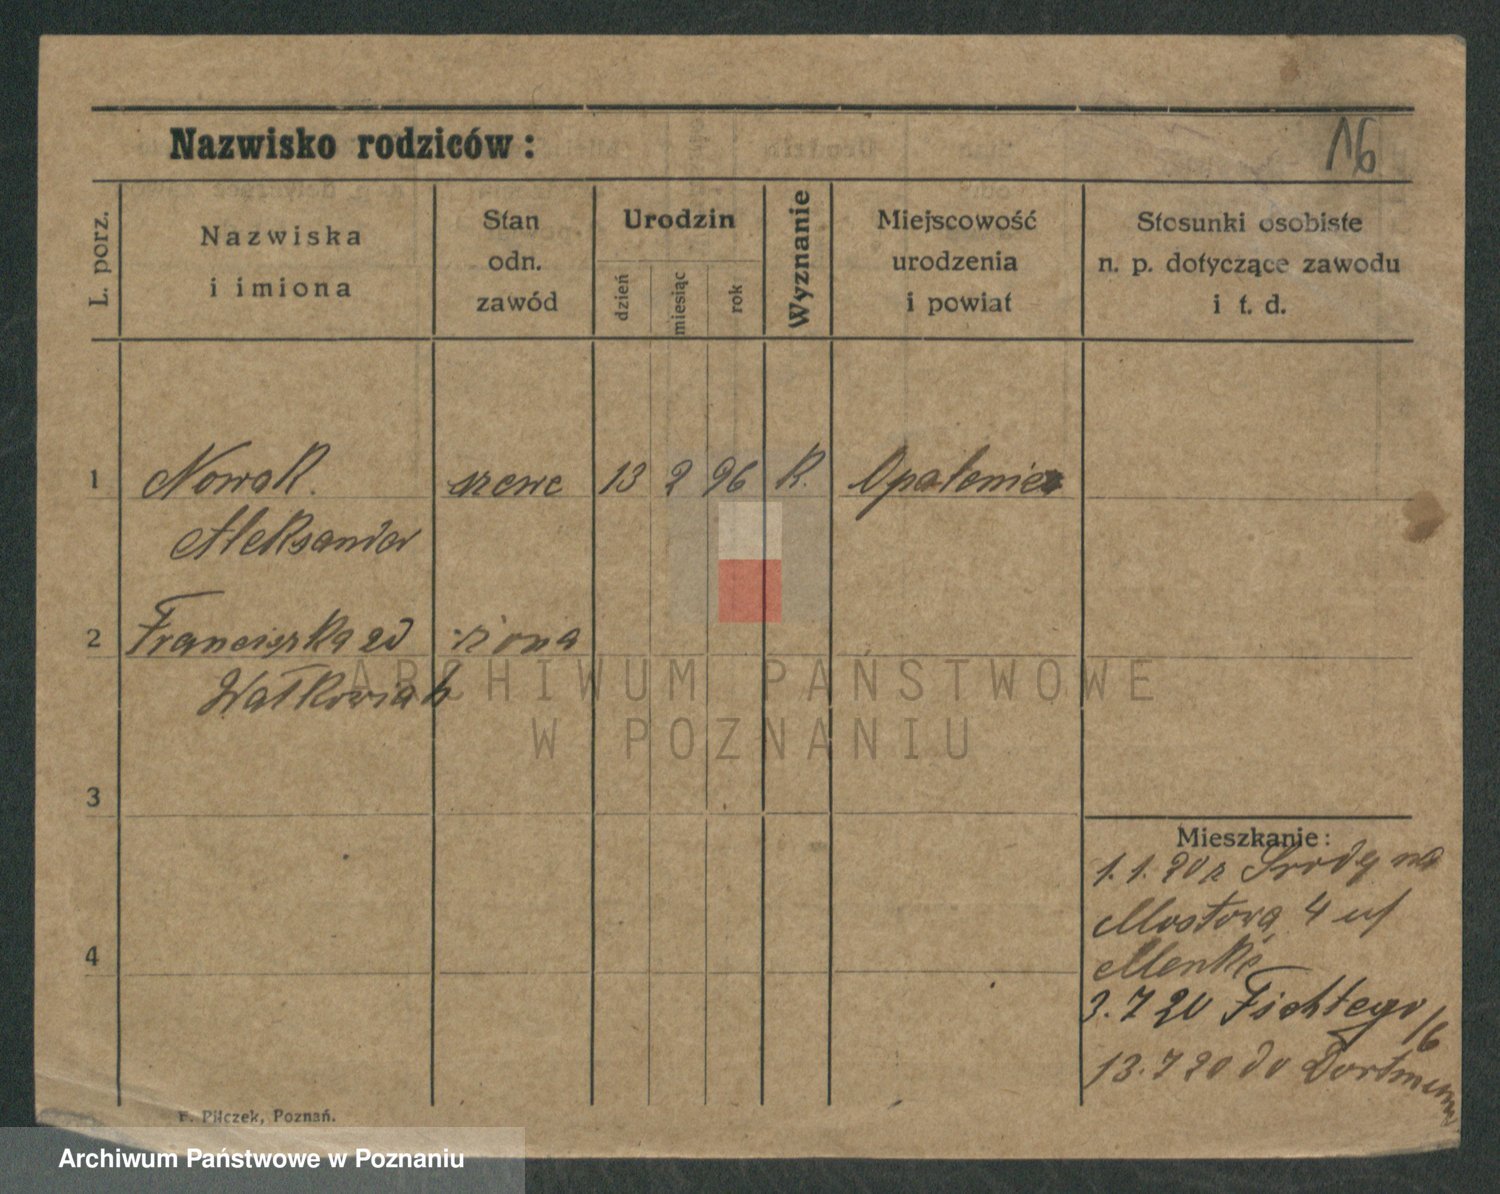 Nazwisko rodziców:
16
L. porz.
Nazwiska
i imiona
Stan
odn.
zawód
Urodzin
dzień
miesiąc
rok
Wyznanie
Miejscowość
urodzenia
i powiat
Stosunki osobiste
n. p. dotyczące zawodu
i t. d.
1 Nowak szewc 13 2 96 K. Opalenica
Aleksander
2 Franciszka zd żona
Watkowiak
ARCHIWUM PAŃSTWOWE
W POZNANIU
3
Mieszkanie:
1.1.20 z Środy na
Mostowa 4 u/
Menke
4
3.7 20 Fichtego 16
13.7 20 do Dortmund
F. Pilczek, Poznań.
Archiwum Państwowe w Poznaniu